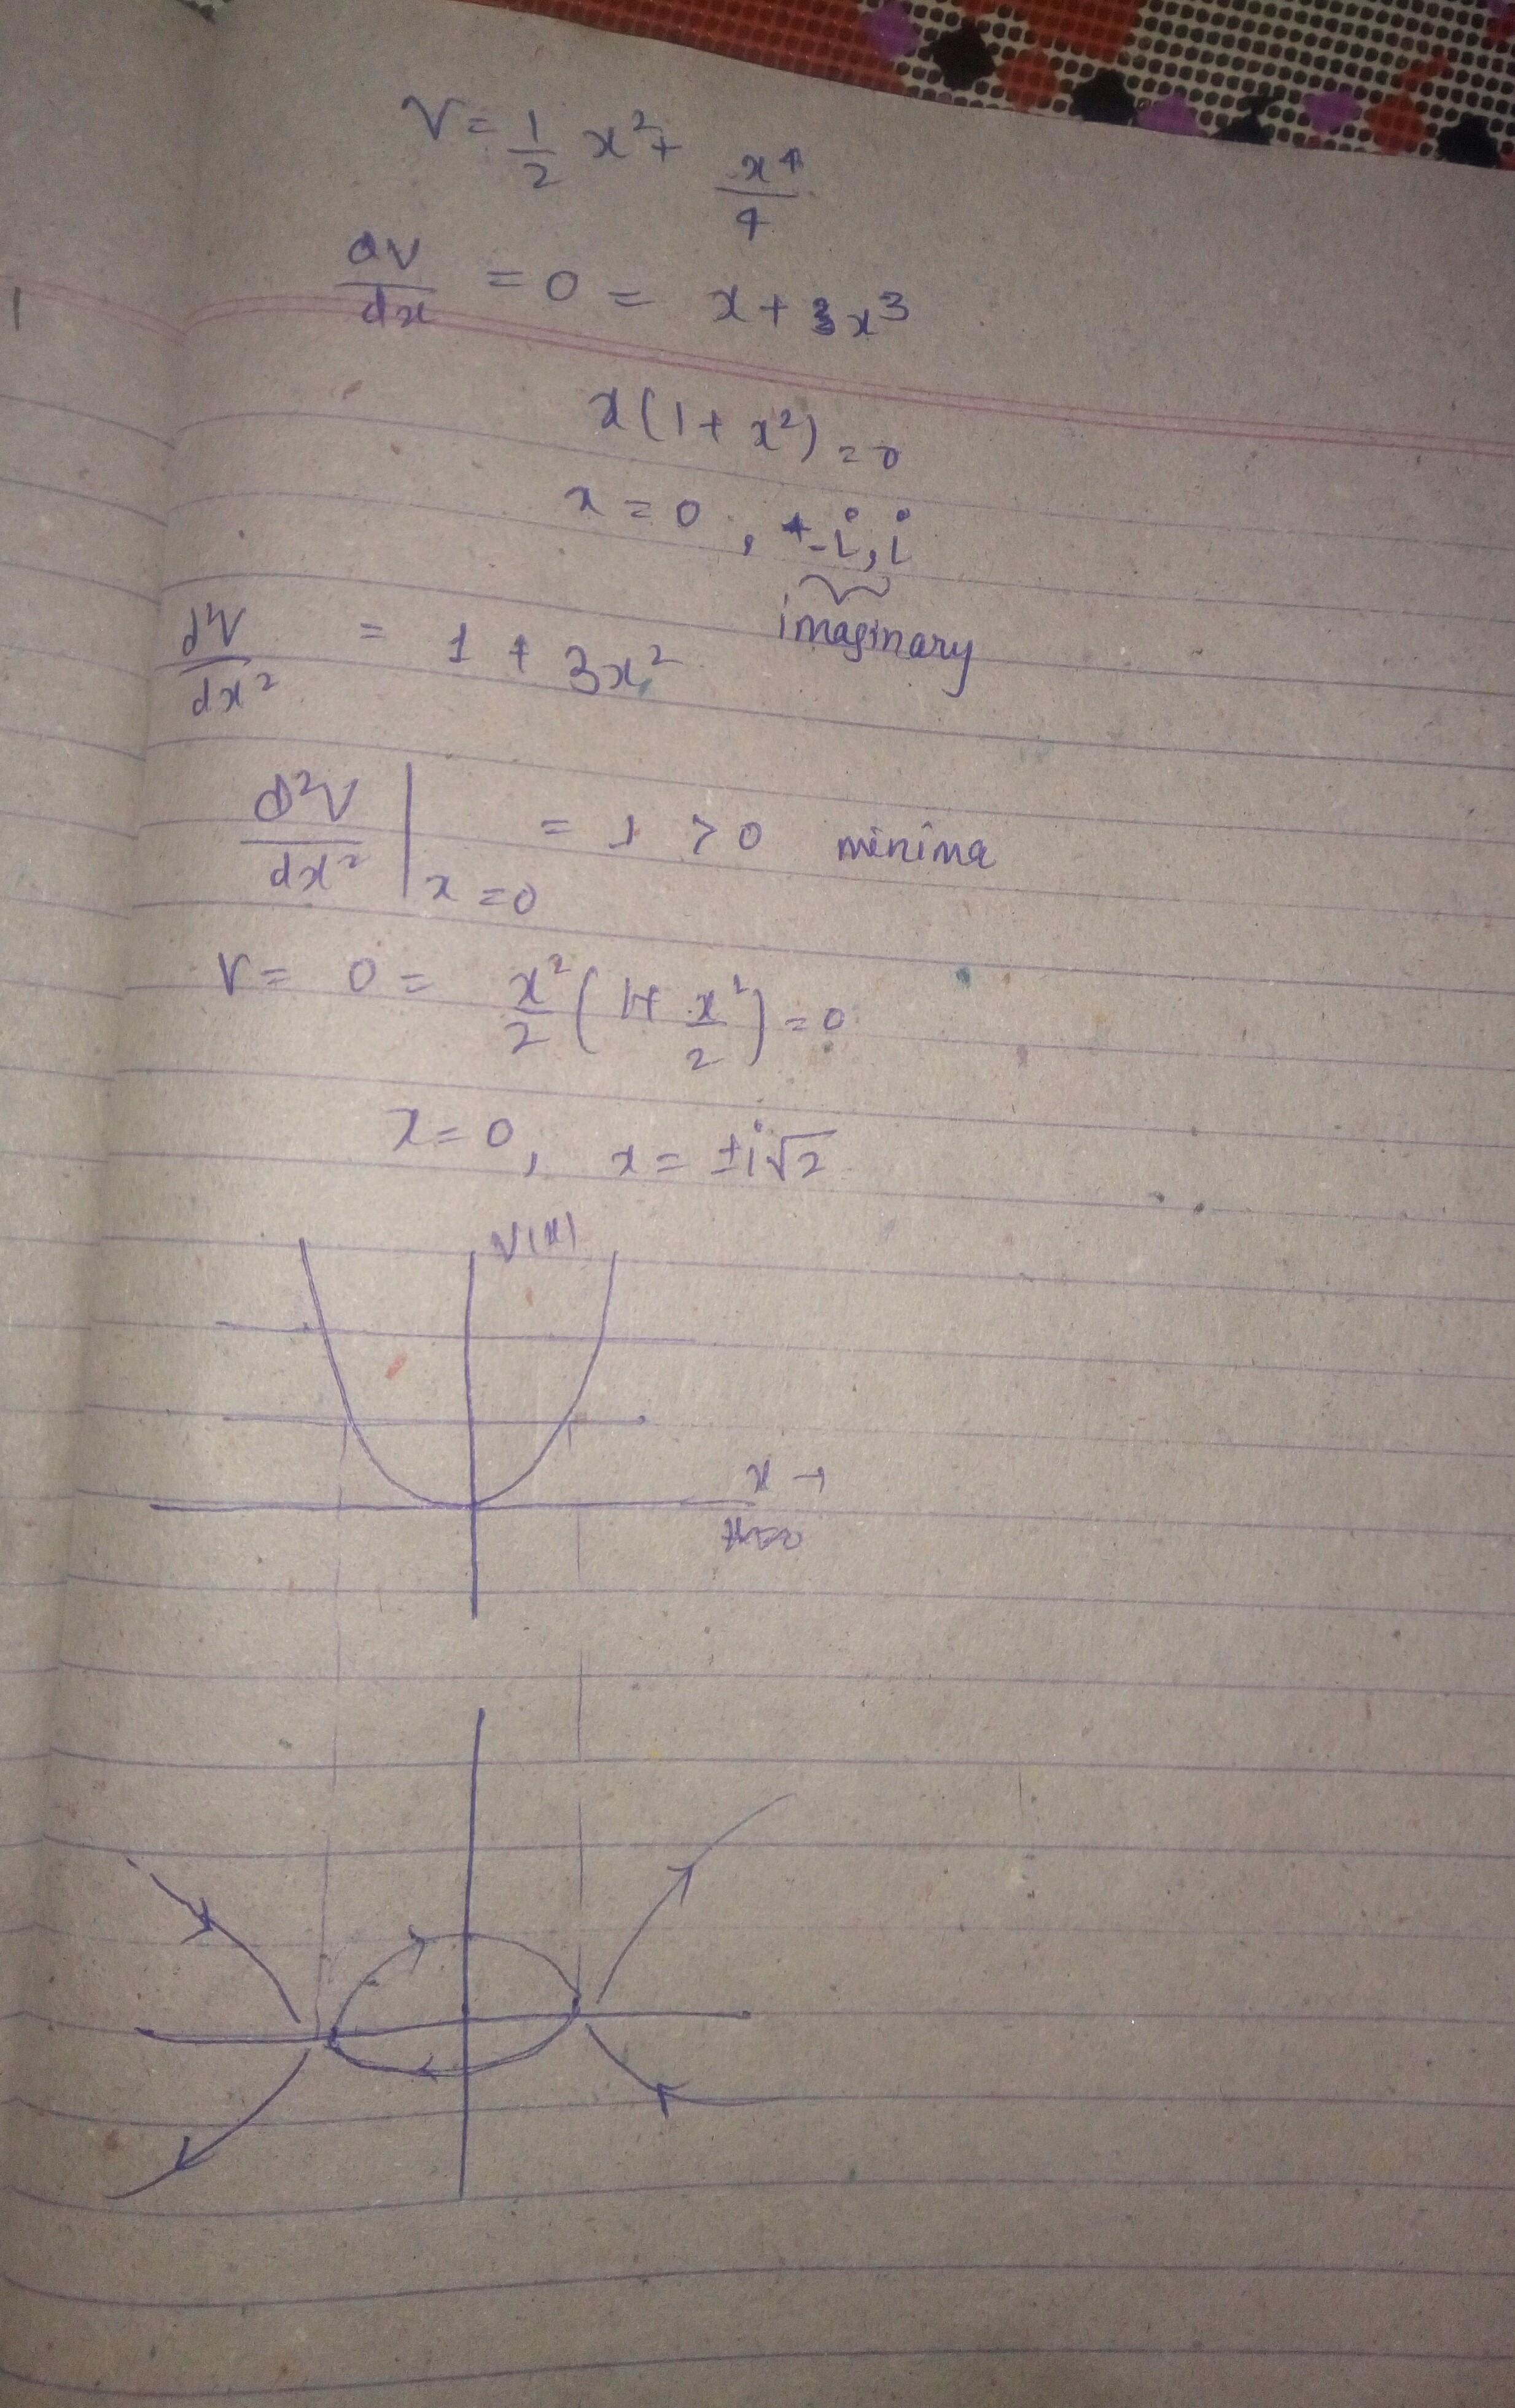 V = 1/2 x² + x⁴/4
dV/dx = 0 = x + x³
x(1 + x²) = 0
x = 0, -i, i
imaginary
d²V/dx² = 1 + 3x²
d²V/dx² |x=0 = 1 > 0 minima
V = 0 = x²/2 (1+ x²/2) = 0
x = 0, x = ±i√2
V(x)
x →